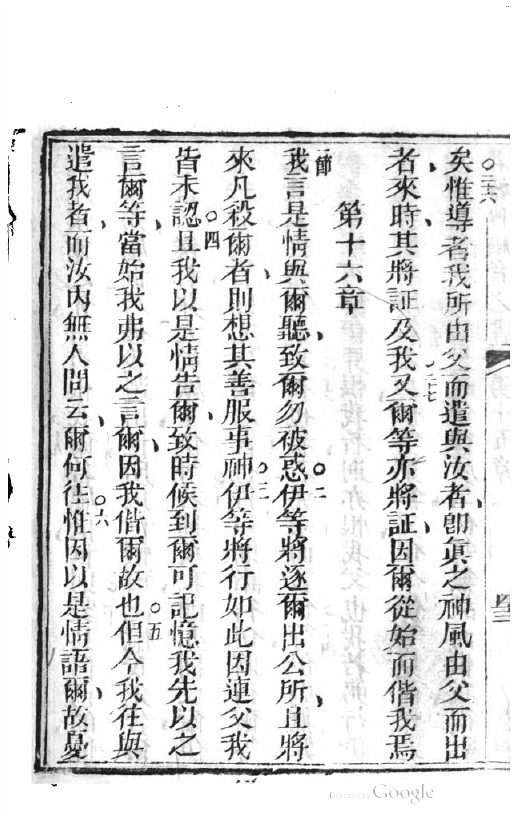 矣惟導者我所由父而遣與汝者卽眞之神風由父而出
者來時其將証及我又爾等亦將証因爾從始而偕我焉
第十六章
我言是情與爾聽致爾勿被惑伊等將逐爾出公所且將
來凡殺爾者則想其善服事神伊等將行如此因連父我
皆未認且我以是情告爾致時候到爾可記憶我先以之
言爾等當始我弗以之言爾因我偕爾故也但今我往與
遣我者而汝內無人問云爾何往惟因以是情語爾故憂
二六
二七
節
二
三
四
五
六
Digitized by Google